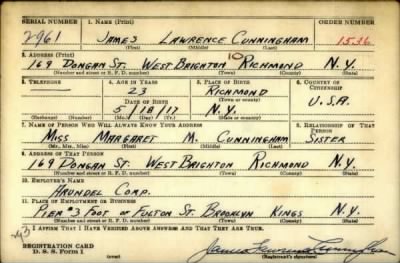 SERIAL NUMBER 1. NAME (Print) ORDER NUMBER
2961 JAMES LAWRENCE CUNNINGHAM 1536
(First) (Middle) (Last)
2. ADDRESS (Print)
169 DONGAN ST. WEST BRIGHTON 10 RICHMOND N.Y.
(Number and street or R. F. D. number) (Town) (County) (State)
3. TELEPHONE 4. AGE IN YEARS 5. PLACE OF BIRTH 6. COUNTRY OF CITIZENSHIP
23 RICHMOND
(Town or county)
DATE OF BIRTH
5/18/17 N.Y. U.S.A.
(Exchange) (Number) (Mo.) (Day) (Yr.) (State or country)
7. NAME OF PERSON WHO WILL ALWAYS KNOW YOUR ADDRESS 8. RELATIONSHIP OF THAT PERSON
MISS MARGARET M. CUNNINGHAM SISTER
(Mr., Mrs., Miss) (First) (Middle) (Last)
9. ADDRESS OF THAT PERSON
169 DONGAN ST. WEST BRIGHTON RICHMOND N.Y.
(Number and street or R. F. D. number) (Town) (County) (State)
10. EMPLOYER'S NAME
ARUNDEL CORP.
11. PLACE OF EMPLOYMENT OR BUSINESS
PIER #3 FOOT OF FULTON ST. BROOKLYN KINGS N.Y.
(Number and street or R. F. D. number) (Town) (County) (State)
I AFFIRM THAT I HAVE VERIFIED ABOVE ANSWERS AND THAT THEY ARE TRUE.
REGISTRATION CARD
D. S. S. Form 1 James Lawrence Cunningham
(Registrant's signature)